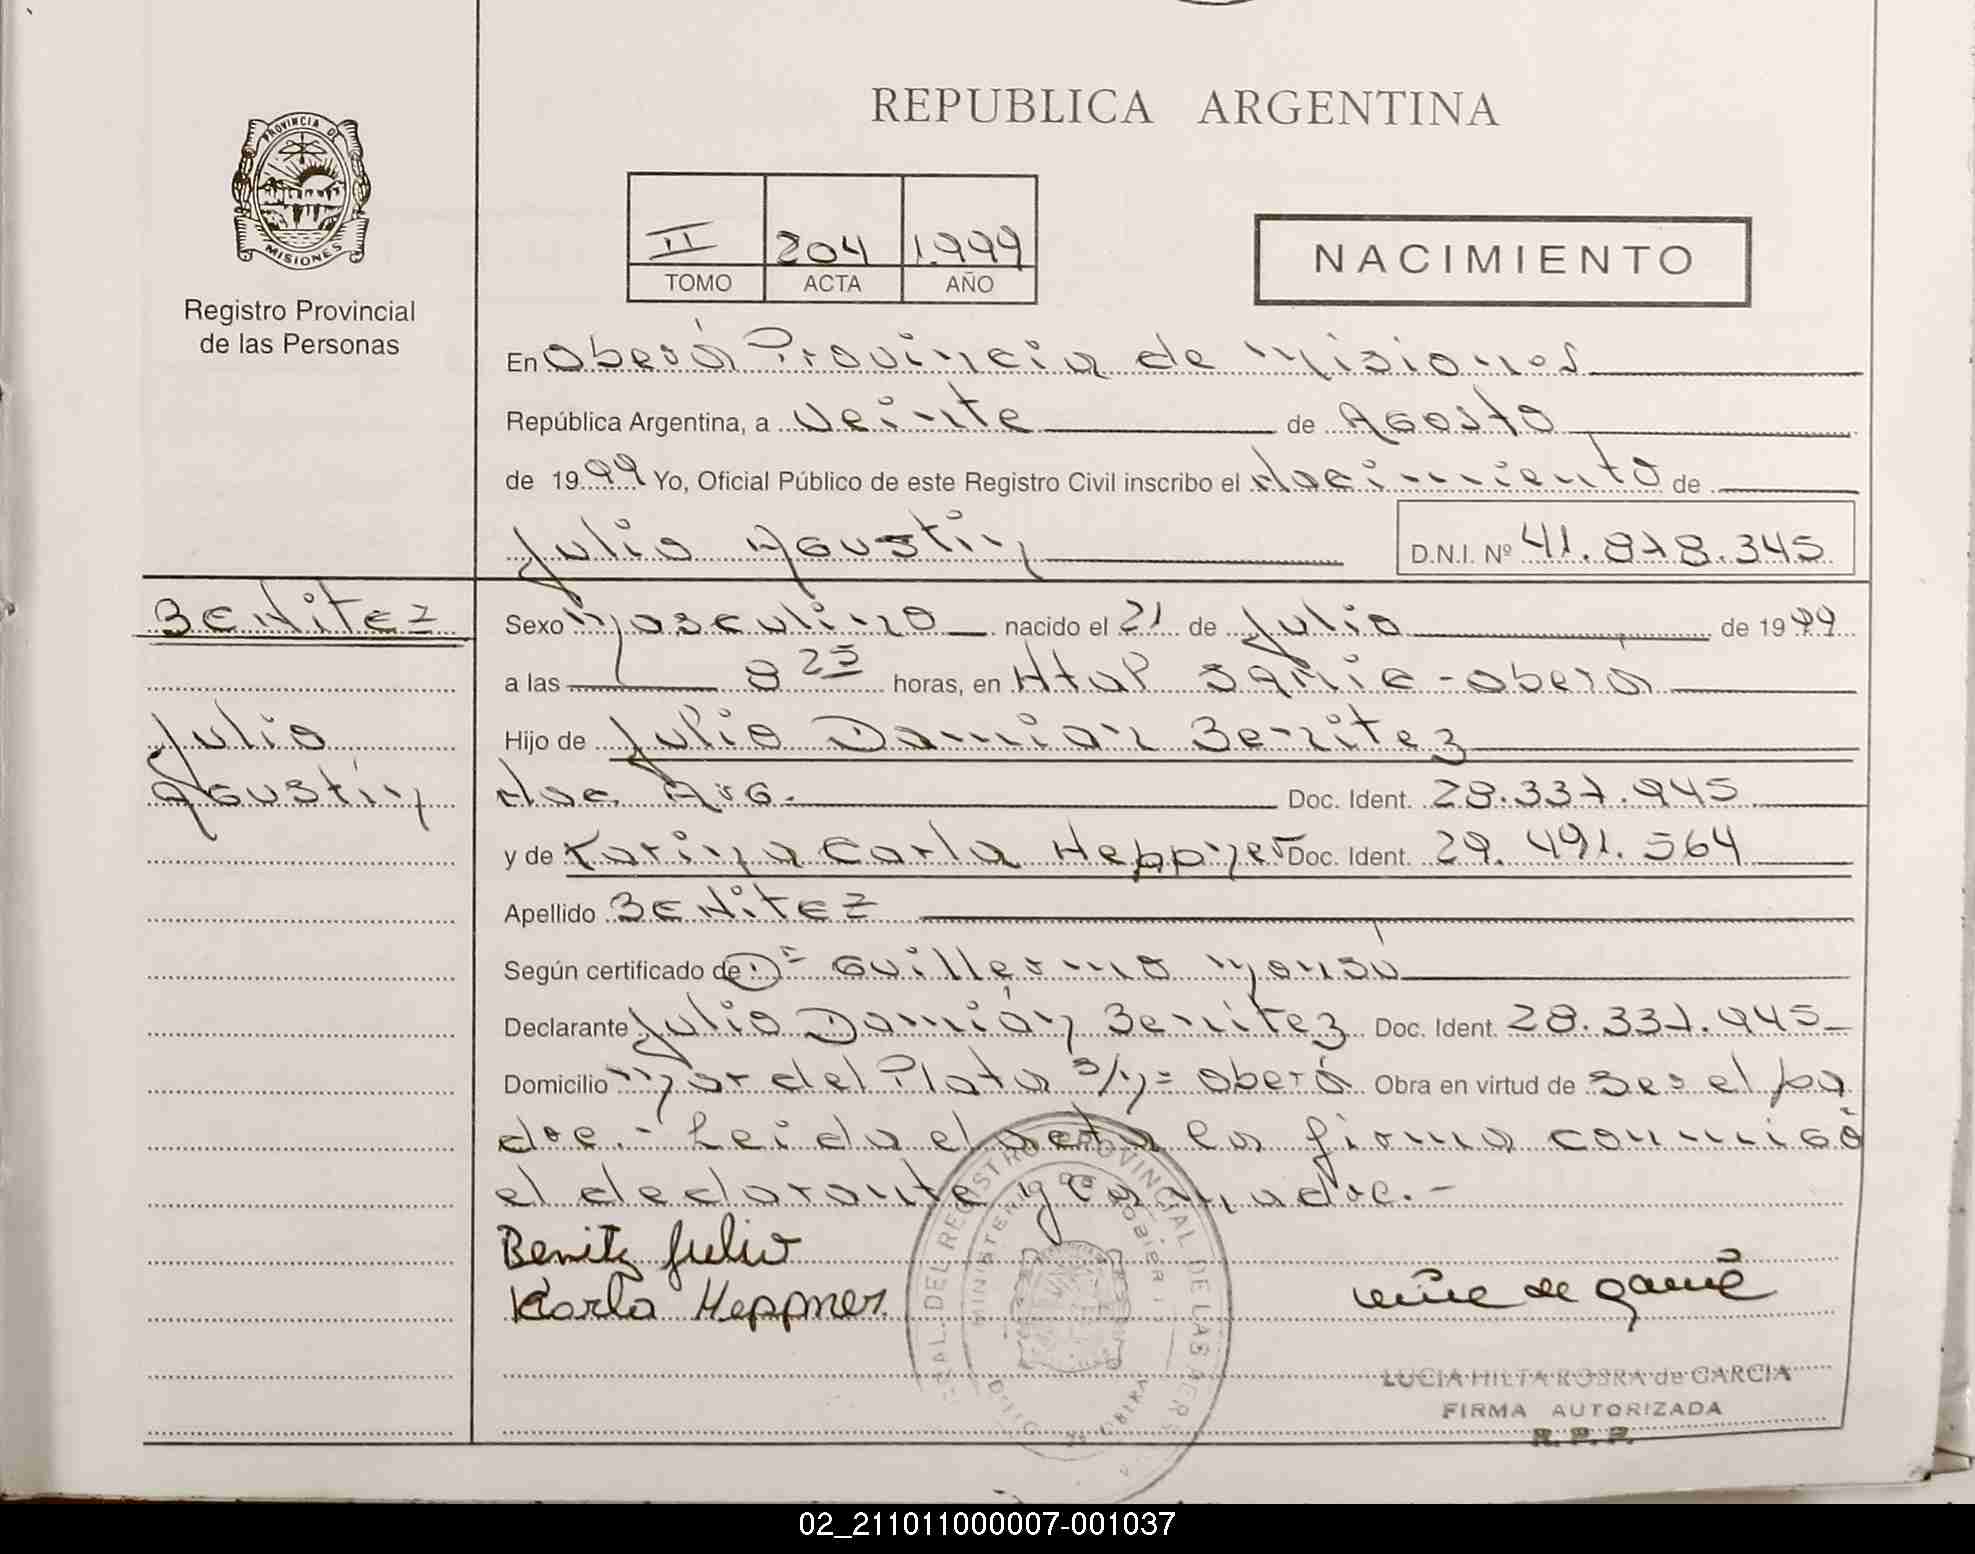 REPUBLICA ARGENTINA
PROVINCIA DE
MISIONES
Registro Provincial
de las Personas
II 204 1.999
TOMO ACTA AÑO
NACIMIENTO
En Oberá Provincia de Misiones
República Argentina, a Veinte de Agosto
de 1999 Yo, Oficial Público de este Registro Civil inscribo el Nacimiento de
Julio Agustín D.N.I. Nº 41.878.345
BENITEZ
Julio
Agustín
Sexo Masculino nacido el 21 de Julio de 1999
a las 8 25 horas, en Htal SAMIC - Oberá
Hijo de Julio Damián Benitez
Nac. Arg. Doc. Ident. 28.337.945
y de Karina Carla Heppner Doc. Ident. 29.491.564
Apellido BENITEZ
Según certificado de Dr Guillermo
Declarante Julio Damián Benitez Doc. Ident. 28.337.945
Domicilio Mar del Plata s/n= Oberá Obra en virtud de Ser el pa
dre.- Leida el acta la firma conmigo
el declarante y la madre.-
Benitz Julio
Karla Heppner
LUCIA HILTA de GARCIA
FIRMA AUTORIZADA
R. P. P.
02_211011000007-001037